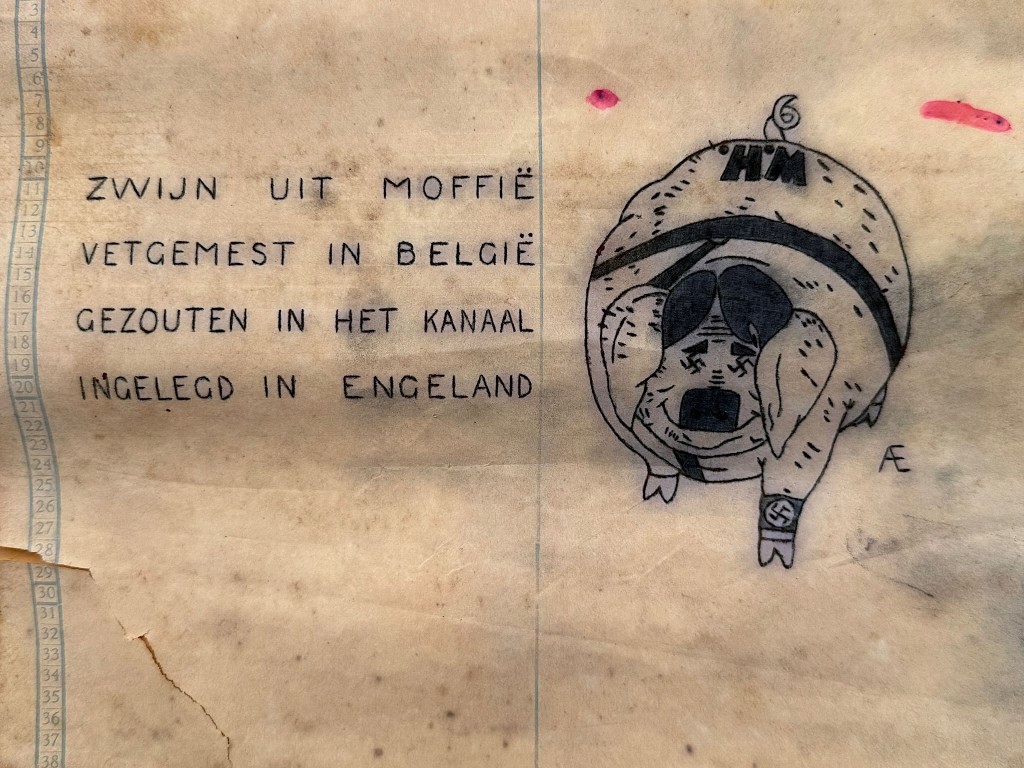 3
4
5
6
7
8
9
10
11
12
13
14
15
16
17
18
19
20
21
22
23
24
25
26
27
28
29
30
31
32
33
34
35
36
37
38
ZWIJN UIT MOFFIË
VETGEMEST IN BELGIË
GEZOUTEN IN HET KANAAL
INGELEGD IN ENGELAND
W.H.
Æ